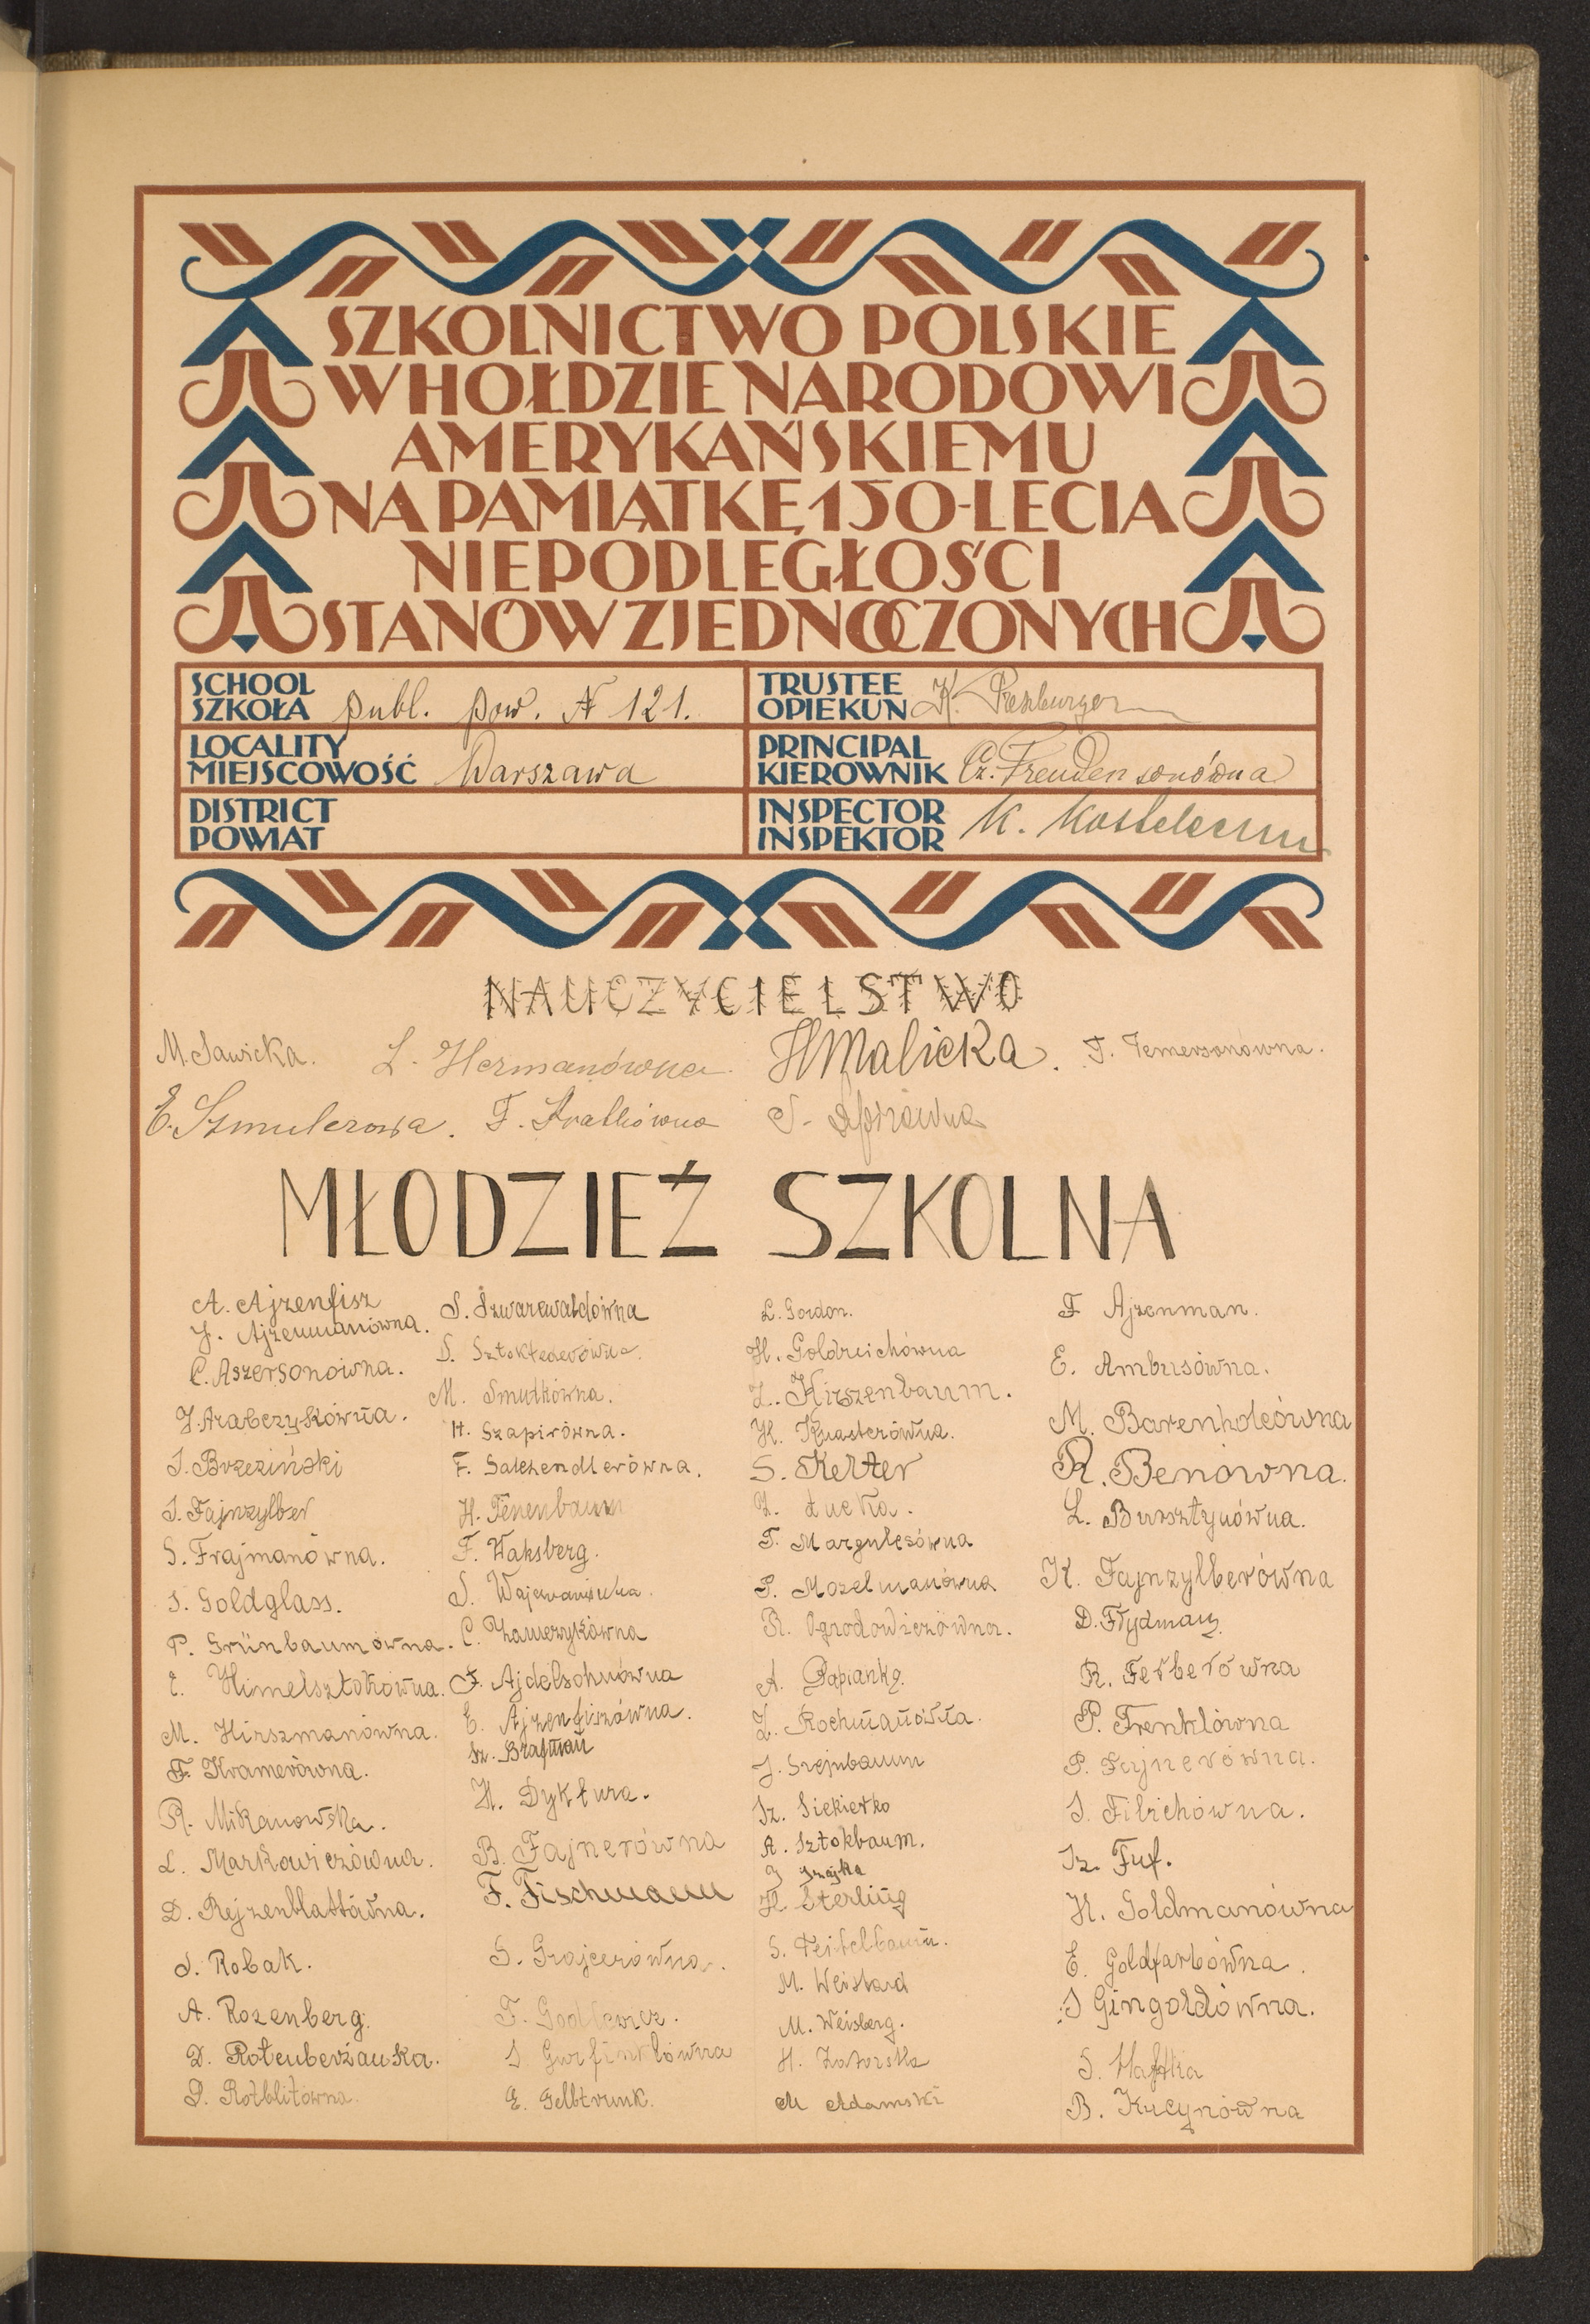 SZKOLNICTWO POLSKIE
W HOŁDZIE NARODOWI
AMERYKAŃSKIEMU
NA PAMIĄTKĘ 150-LECIA
NIEPODLEGŁOŚCI
STANÓW ZJEDNOCZONYCH
SCHOOL
SZKOŁA publ. pow. N 121.
TRUSTEE
OPIEKUN K. Prezburger
LOCALITY
MIEJSCOWOŚĆ Warszawa
PRINCIPAL
KIEROWNIK Cz. Freudensonówna
DISTRICT
POWIAT
INSPECTOR
INSPEKTOR K.
NAUCZYCIELSTWO
M. Sawicka. L. Hermanówna. H Malicka. T. Temersonówna.
E. Szmulerowa. F. S.
MŁODZIEŻ SZKOLNA
A. Ajzenfisz
J. Ajzenmanówna.
C. Aszersonówna.
J. Arabczykówna.
I. Brzeziński
I. Fajnzylber
S. Frajmanówna.
S. Goldglass.
P. Grünbaumówna.
E. Himelsztokówna.
M. Hirszmanówna.
F. Kramerówna.
R. Mikanowska.
L. Markowiczówna.
D. Rejzenblattówna.
J. Robak.
A. Rozenberg.
D. Rotenberżanka.
D. Rotblitówna.
S. Szwarcwaldówna
S. Sztoklederówna.
M. Smutkówna.
H. Szapirówna.
F. Salchendlerówna.
H. Tenenbaum
F. Waksberg.
S.
C. Zamczykówna
F. Ajdelsohnówna
E. Ajzenfiszówna.
Sz. Brafman
H. Dyktura.
B. Fajnerówna
F. Fischmann
S. Grajcerówna.
F. Godlewicz.
S. Gurfinklówna
E. Gelbtrunk.
L. Gordon.
H. Goldreichówna
L. Kirszenbaum.
H. Knasterówna.
S. Kelter
Z. Łucka.
T. Margulesówna
P. Mozelmanówna
R. Ogrodowiczówna.
A. Papianka.
Z. Rochmanówna.
J. Srejnbaum
Sz. Siekierko
A. Sztokbaum.
J Szajka
H. Sterling
S. Teitelbaum.
M. Weisbard
M. Weisberg.
H. Zatorska
M Adamski
F Ajzenman.
E. Ambusówna.
M. Barenholcówna
R. Benówna.
L. Bursztynówna.
K. Fajnzylberówna
D. Frydman.
R. Ferberówna
P. Frenklówna
P. Fajnerówna.
S. Filrichówna.
Sz. Fuf.
H. Goldmanówna
E. Goldfarbówna.
S Gingoldówna.
S. Haftka
B. Kucynówna